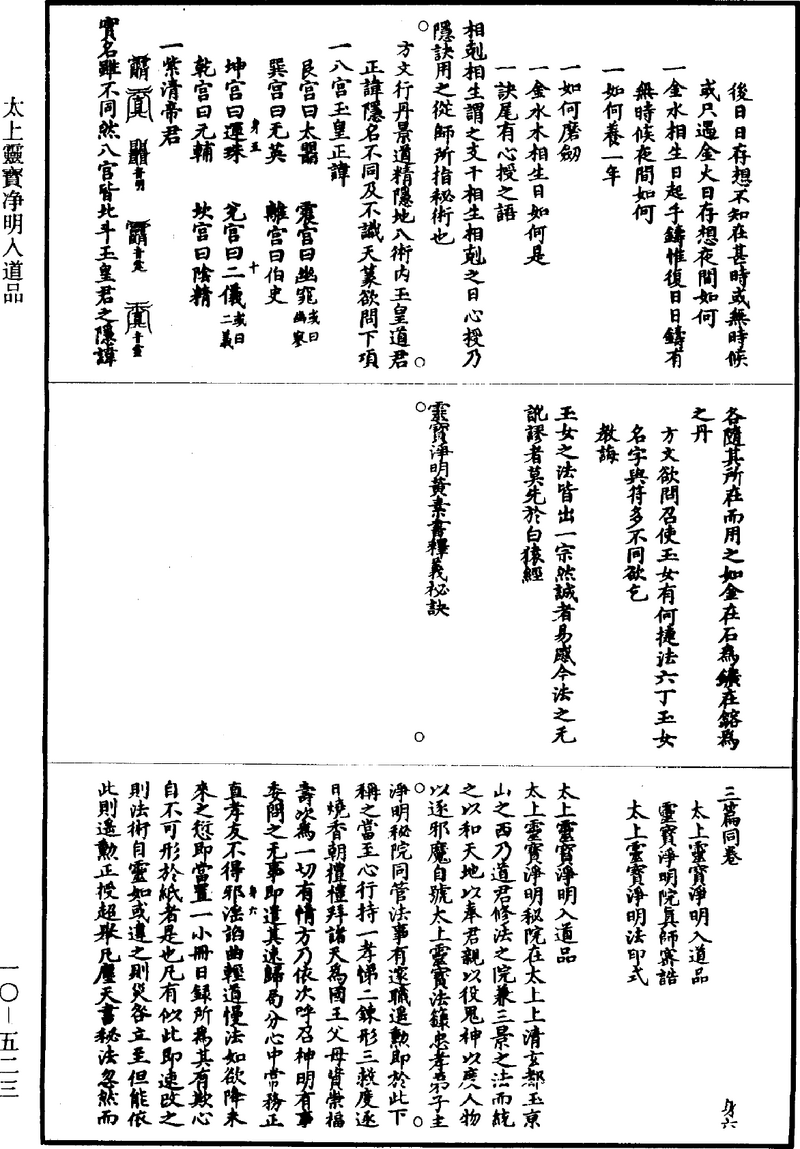 後日日存想不知在甚時或無時候
或只遇金火日存想夜間如何
一金水相生日起手鑄惟復日日鑄有
無時候夜間如何
一如何養一年
一如何磨劒
一金水木相生日如何是
一訣尾有心授之語
相剋相生謂之支干相生相剋之日心授乃
隱訣用之從師所指秘術也
方文行丹景道精隱地八術内玉皇道君
正諱隱名不同及不識天篆欲問下項
一八宮玉皇正諱
艮宮曰太嚚 震宮曰幽窕或曰幽寥
巽宮曰无英 離宮曰伯史
坤宮曰運珠 兌宮曰二儀或曰二義
乾宮曰元輔 坎宮曰陰精
身五 十
一紫清帝君
實名雖不同然八宮皆北斗玉皇君之隱諱
各隨其所在而用之如金在石為鑛在鎔為
之丹
方文欲問召使玉女有何捷法六丁玉女
名字與符多不同欲乞
教誨
玉女之法皆出一宗然誠者易感今法之无
訛謬者莫先於白猿經
靈寶淨明黃素書釋義祕訣
三篇同卷 身六
太上靈寶淨明入道品
靈寶淨明院真師密誥
太上靈寶淨明法印式
太上靈寶淨明入道品
太上靈寶淨明秘院在太上上清玄都玉京
山之西乃道君修法之院兼三景之法而統
之以和天地以奉君親以役鬼神以度人物
以逐邪魔自號太上靈寶法籙忠孝弟子主
淨明秘院同管法事有遷職遷勳即於此下
稱之當主心行持一孝悌二鍊形三救度逐
日燒香朝禮禮拜諸天為國王父母資崇福
壽次為一切有情方乃依次呼召神明有事
委問之无事即遣其速歸局分心中常務正
身六
直孝友不得邪淫諂曲輕道慢法如欲降未
來之愆即當置一小冊日録所為其有欺心
自不可形於紙者是也凡有似此即速改之
則法術自靈如或違之則災咎立至但能依
此則遙勳正授超舉凡塵天書秘法忽然而
太上靈寶净明入道品
一〇—五二三